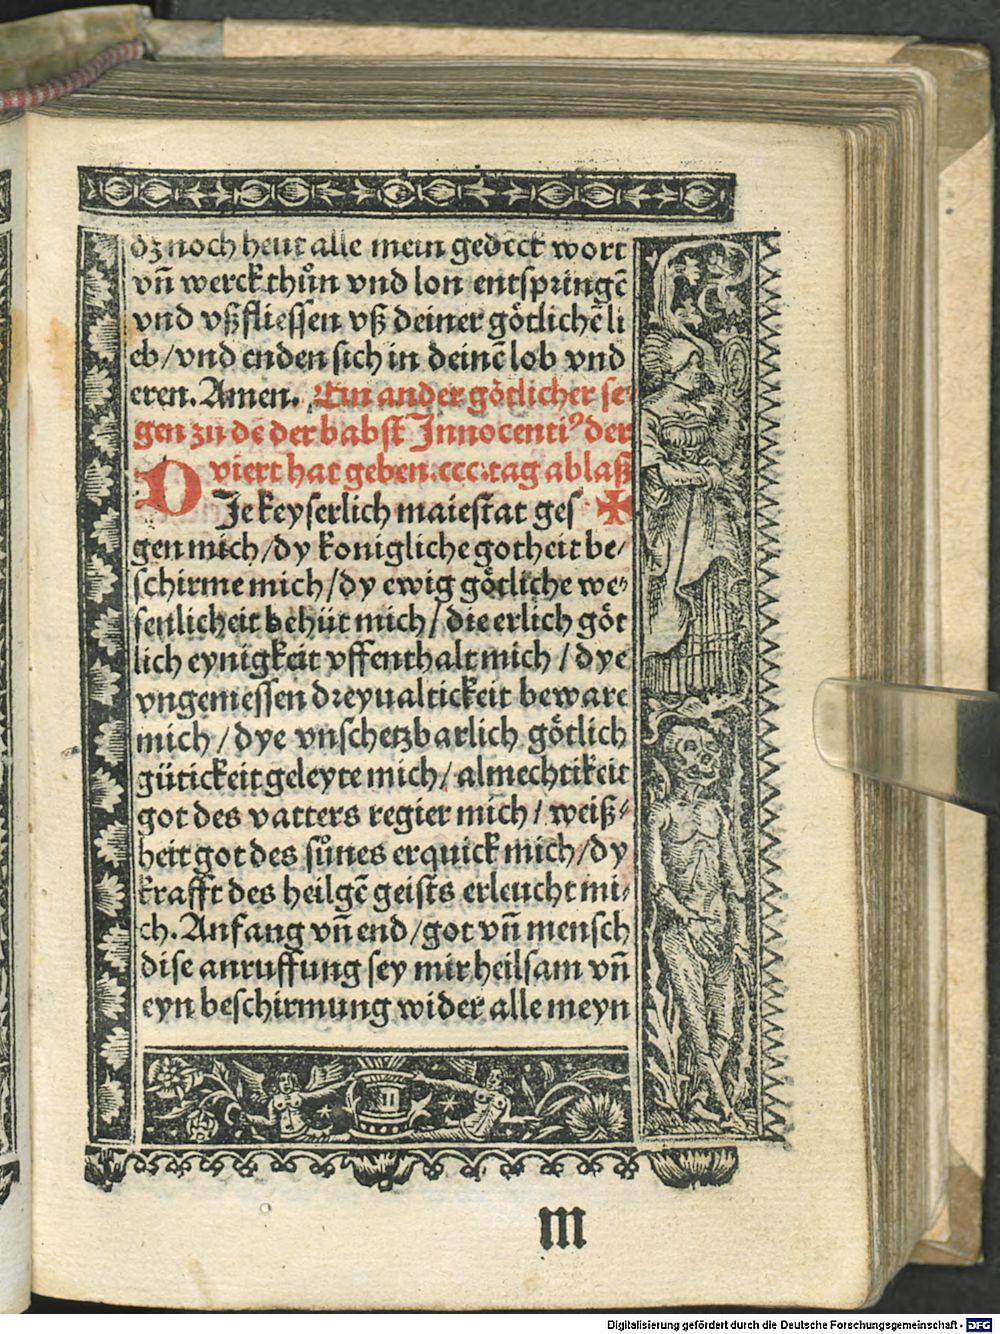 dz noch heut alle mein gedeck wort
vñ werck thůn vnd lon entspringē
vnd vßfliessen vß deiner gőtlichē li
eb/vnd enden sich in deinē lob vnd
eren. Amen. Ein ander gőtlicher se⸗
gen zů dē der babst Innocentiꝰ der
viert hat geben.ccc.tag ablaß
DJe keyserlich maiestat ges ✠
gen mich/dy konigliche gotheit be⸗
schirme mich/dy ewig gőtliche we⸗
senlicheit behüt mich/die erlich gőt
lich eynigkeit vffenthalt mich/dye
vngemessen dreyualtickeit beware
mich/dye vnschetzbarlich gőtlich
gütickeit geleyte mich/almechtikeit
got des vatters regier mich/weiß⸗
heit got des sůnes erquick mich/dy
krafft des heilgē geists erleucht mi⸗
ch. Anfang vñ end/got vñ mensch
dise anruffung sey mir heilsam vñ
eyn beschirmung wider alle meyn
m
Digitalisierung gefördert durch die Deutsche Forschungsgemeinschaft - DFG